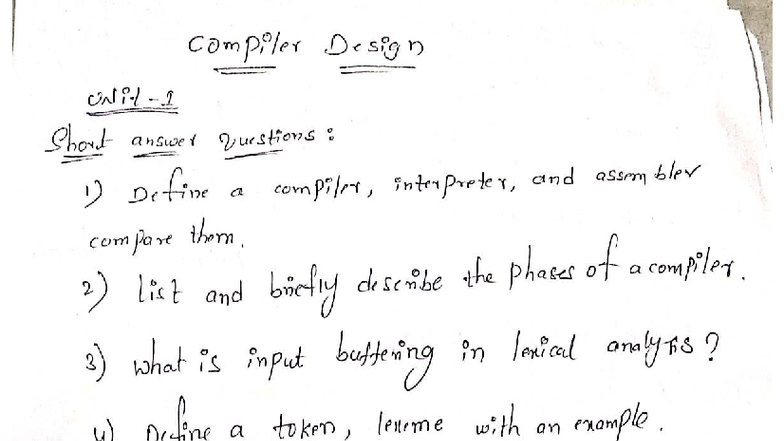 Compiler Design
UNit-1
Short answer Questions :
1) Define a compiler, interpreter, and assembler
compare them.
2) list and briefly describe the phases of a compiler.
3) what is input buffering in lexical analysis ?
4) Define a token, lexeme with an example.